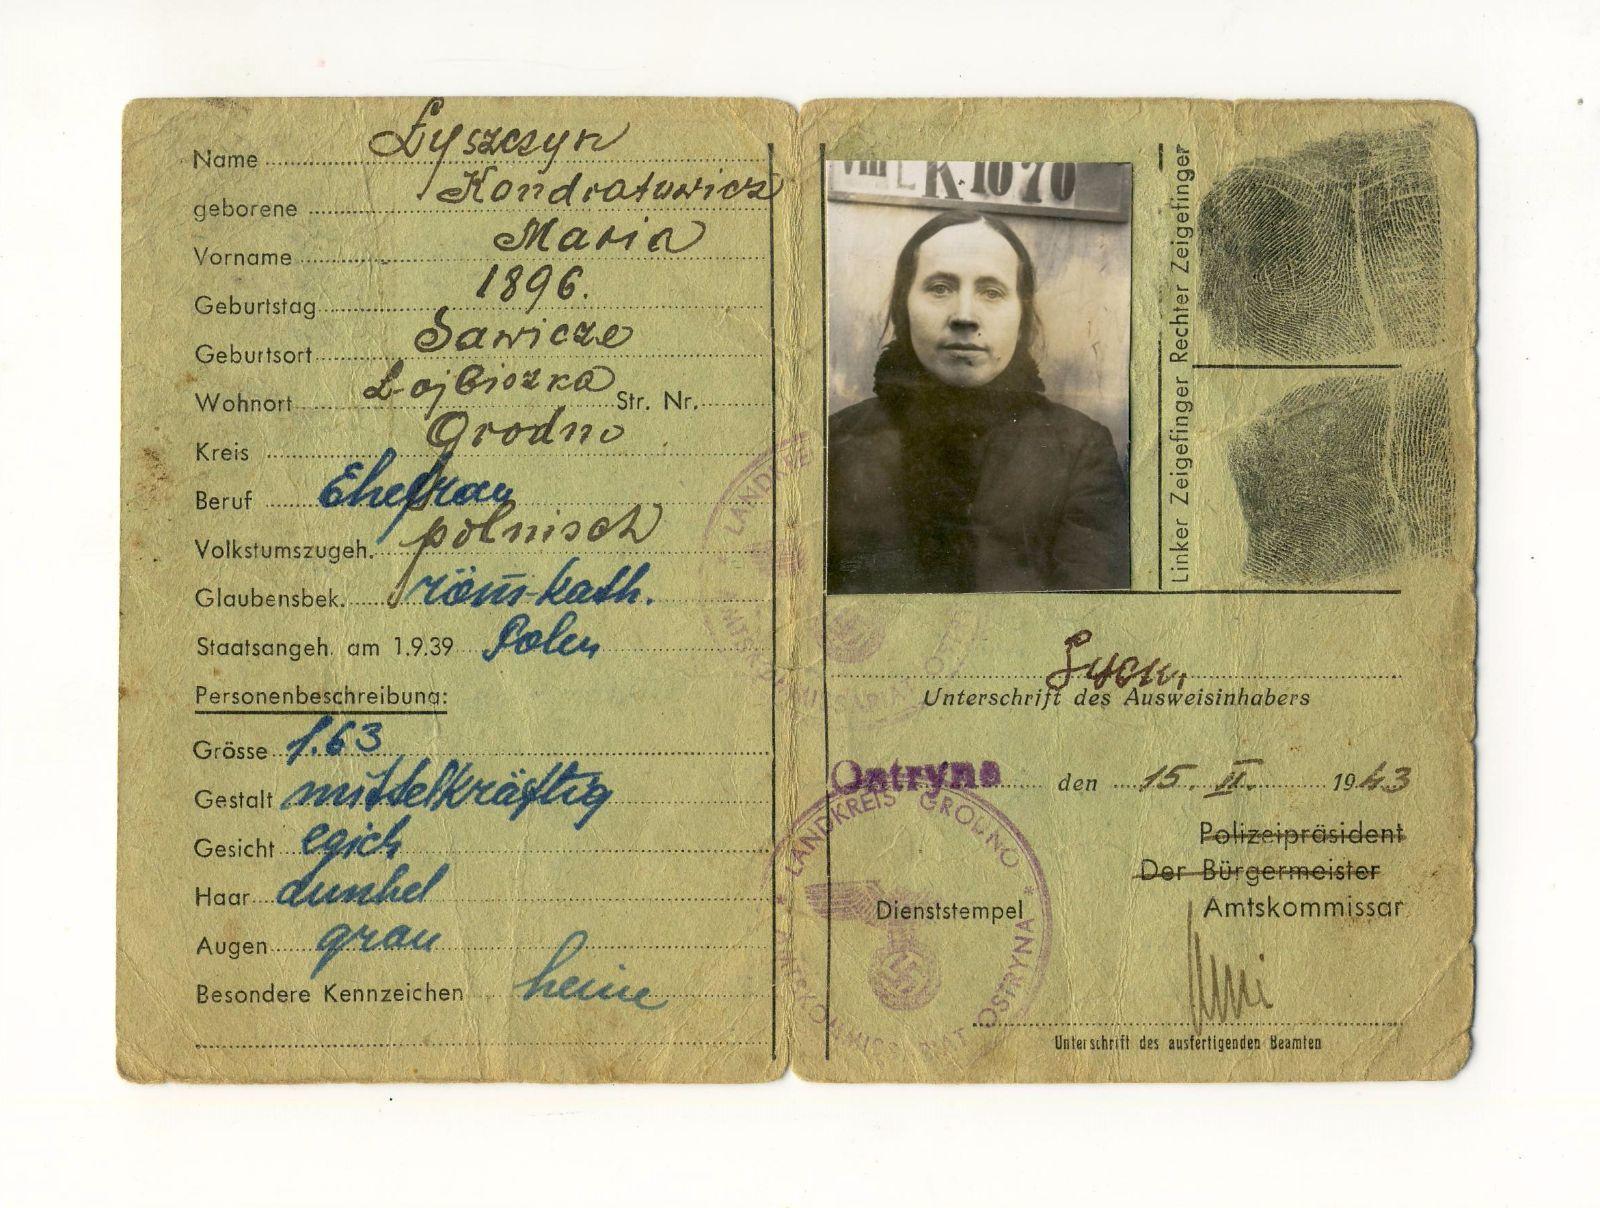 Name Łyszczyn
geborene Kondratowicz
Vorname Maria
Geburtstag 1896.
Geburtsort Sawicze
Wohnort Str. Nr.
Kreis Grodno
Beruf Ehefrau
Volkstumszugeh. polnisch
Glaubensbek. röm-kath.
Staatsangeh. am 1.9.39 Polen
Personenbeschreibung:
Grösse 1.63
Gestalt mittelkräftig
Gesicht
Haar dunkel
Augen grau
Besondere Kennzeichen keine
K.1070
Rechter Zeigefinger
Linker Zeigefinger
Unterschrift des Ausweisinhabers
Ostryna den 15. II. 1943
Polizeipräsident
Der Bürgermeister
Amtskommissar
Dienststempel
LANDKREIS GRODNO
AMTSKOMMISSARIAT OSTRYNA
Unterschrift des ausfertigenden Beamten